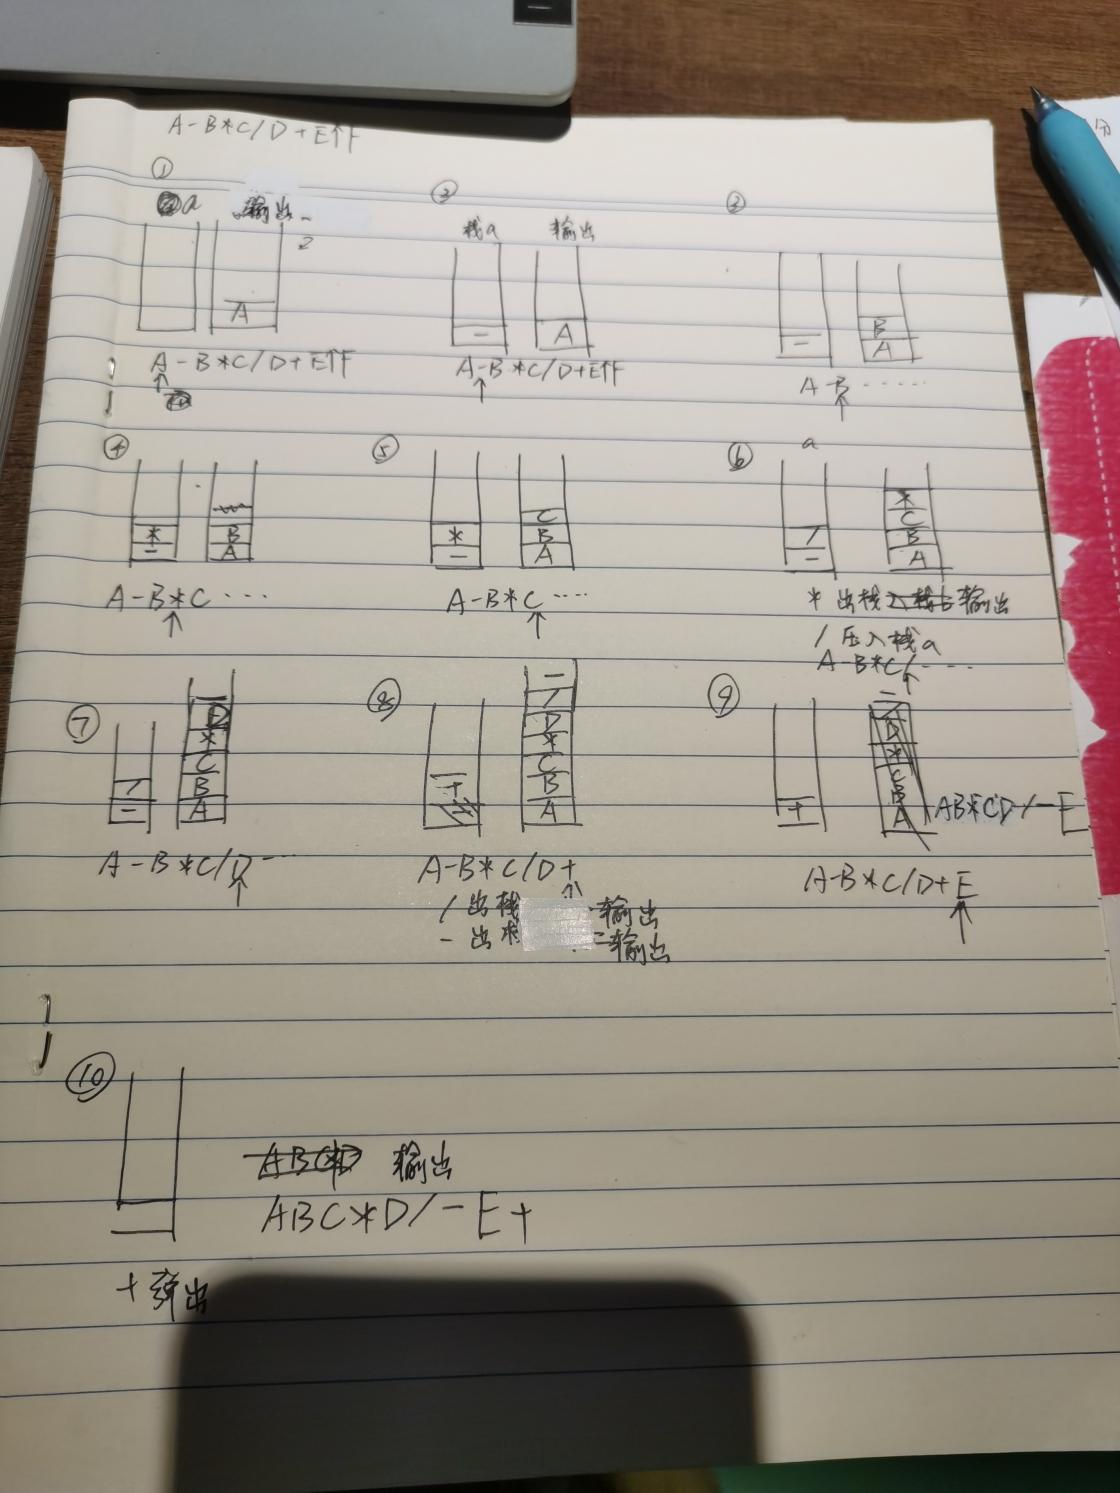 A-B*C/D+E↑F
①
a 输出
2
A
A-B*C/D+E↑F
↑
②
栈a 输出
- A
A-B*C/D+E↑F
↑
③
B
- A
A-B·····
↑
④
* B
- A
A-B*C···
↑
⑤
C
* B
- A
A-B*C····
↑
⑥
a
*
C
/ B
- A
* 出栈 输出
/ 压入栈a
A-B*C/····
↑
⑦
D
*
C
/ B
- A
A-B*C/D···
↑
⑧
-
/
D
*
C
+ B
A
A-B*C/D+
↑
/ 出栈 输出
- 出栈 输出
⑨
-
/
D
*
C
B
+ A
AB*CD/-E
A-B*C/D+E
↑
⑩
输出
ABC*D/-E+
+弹出